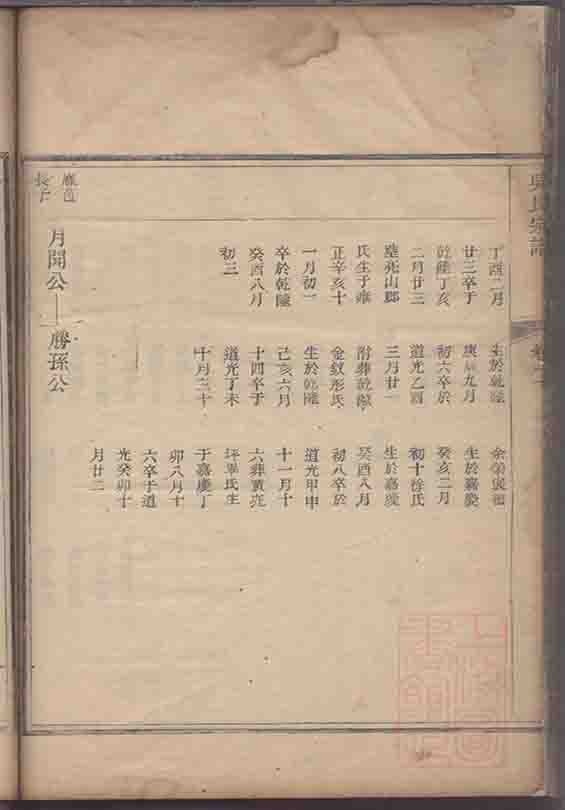 吳氏宗譜
丁酉二月
廿三卒于
乾隆丁亥
二月廿三
墓亮山鄒
氏生于雍
正辛亥十
一月初二
卒於乾隆
癸酉八月
初三
生於乾隆
庚辰九月
初六卒於
道光乙酉
三月廿一
附葬乾
金釵形氏
生於乾隆
己亥六月
十四卒于
道光丁未
十月三十
生於嘉慶
癸亥二月
初十徐氏
生於嘉慶
癸酉八月
初八卒於
道光甲申
十一月十
六葬黃
坪畢氏生
于嘉慶丁
卯八月十
六卒于道
光癸卯十
月廿二
長子
月開公
勝孫公